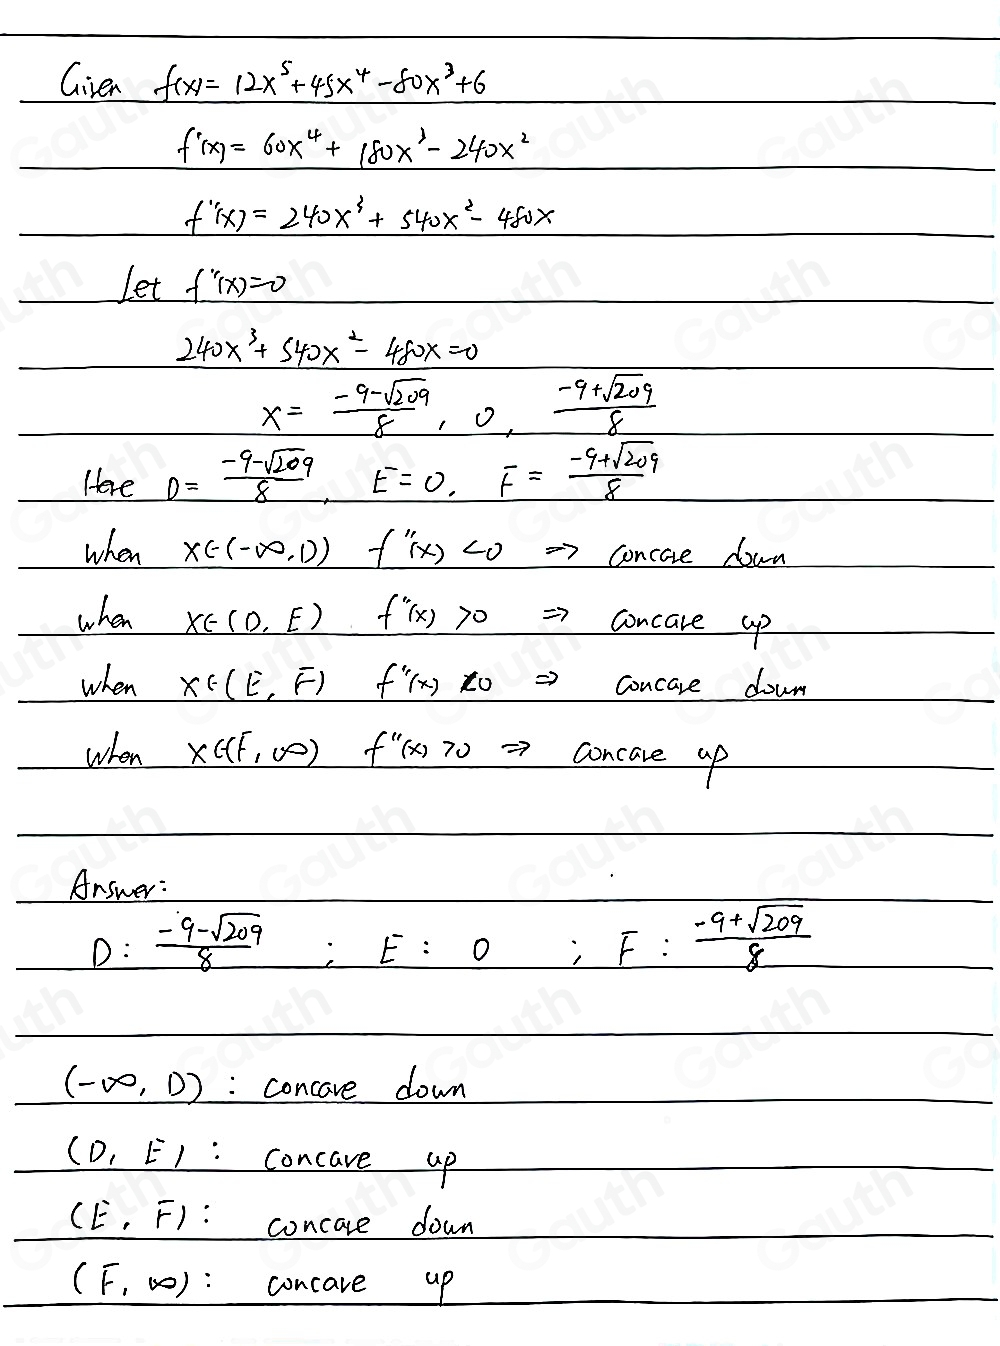 Given f(x)= 12x⁵+45x⁴-80x³+6
f'(x)= 60x⁴+ 180x³- 240x²
f"(x)= 240x³+ 540x²- 480x
Let f"(x)=0
240x³+ 540x²- 480x=0
x= (-9-√209)/8, 0, (-9+√209)/8
Here D= (-9-√209)/8, E=0, F= (-9+√209)/8
when x∈(-∞,D) f"(x) <0 => concave down
when x∈(D, E) f"(x) >0 => concave up
when x∈(E, F) f"(x) <0 => concave down
when x∈(F, ∞) f"(x) >0 => concave up
Answer:
D: (-9-√209)/8 ; E: 0 ; F: (-9+√209)/8
(-∞, D): concave down
(D, E): concave up
(E, F): concave down
(F, ∞): concave up
Gauth